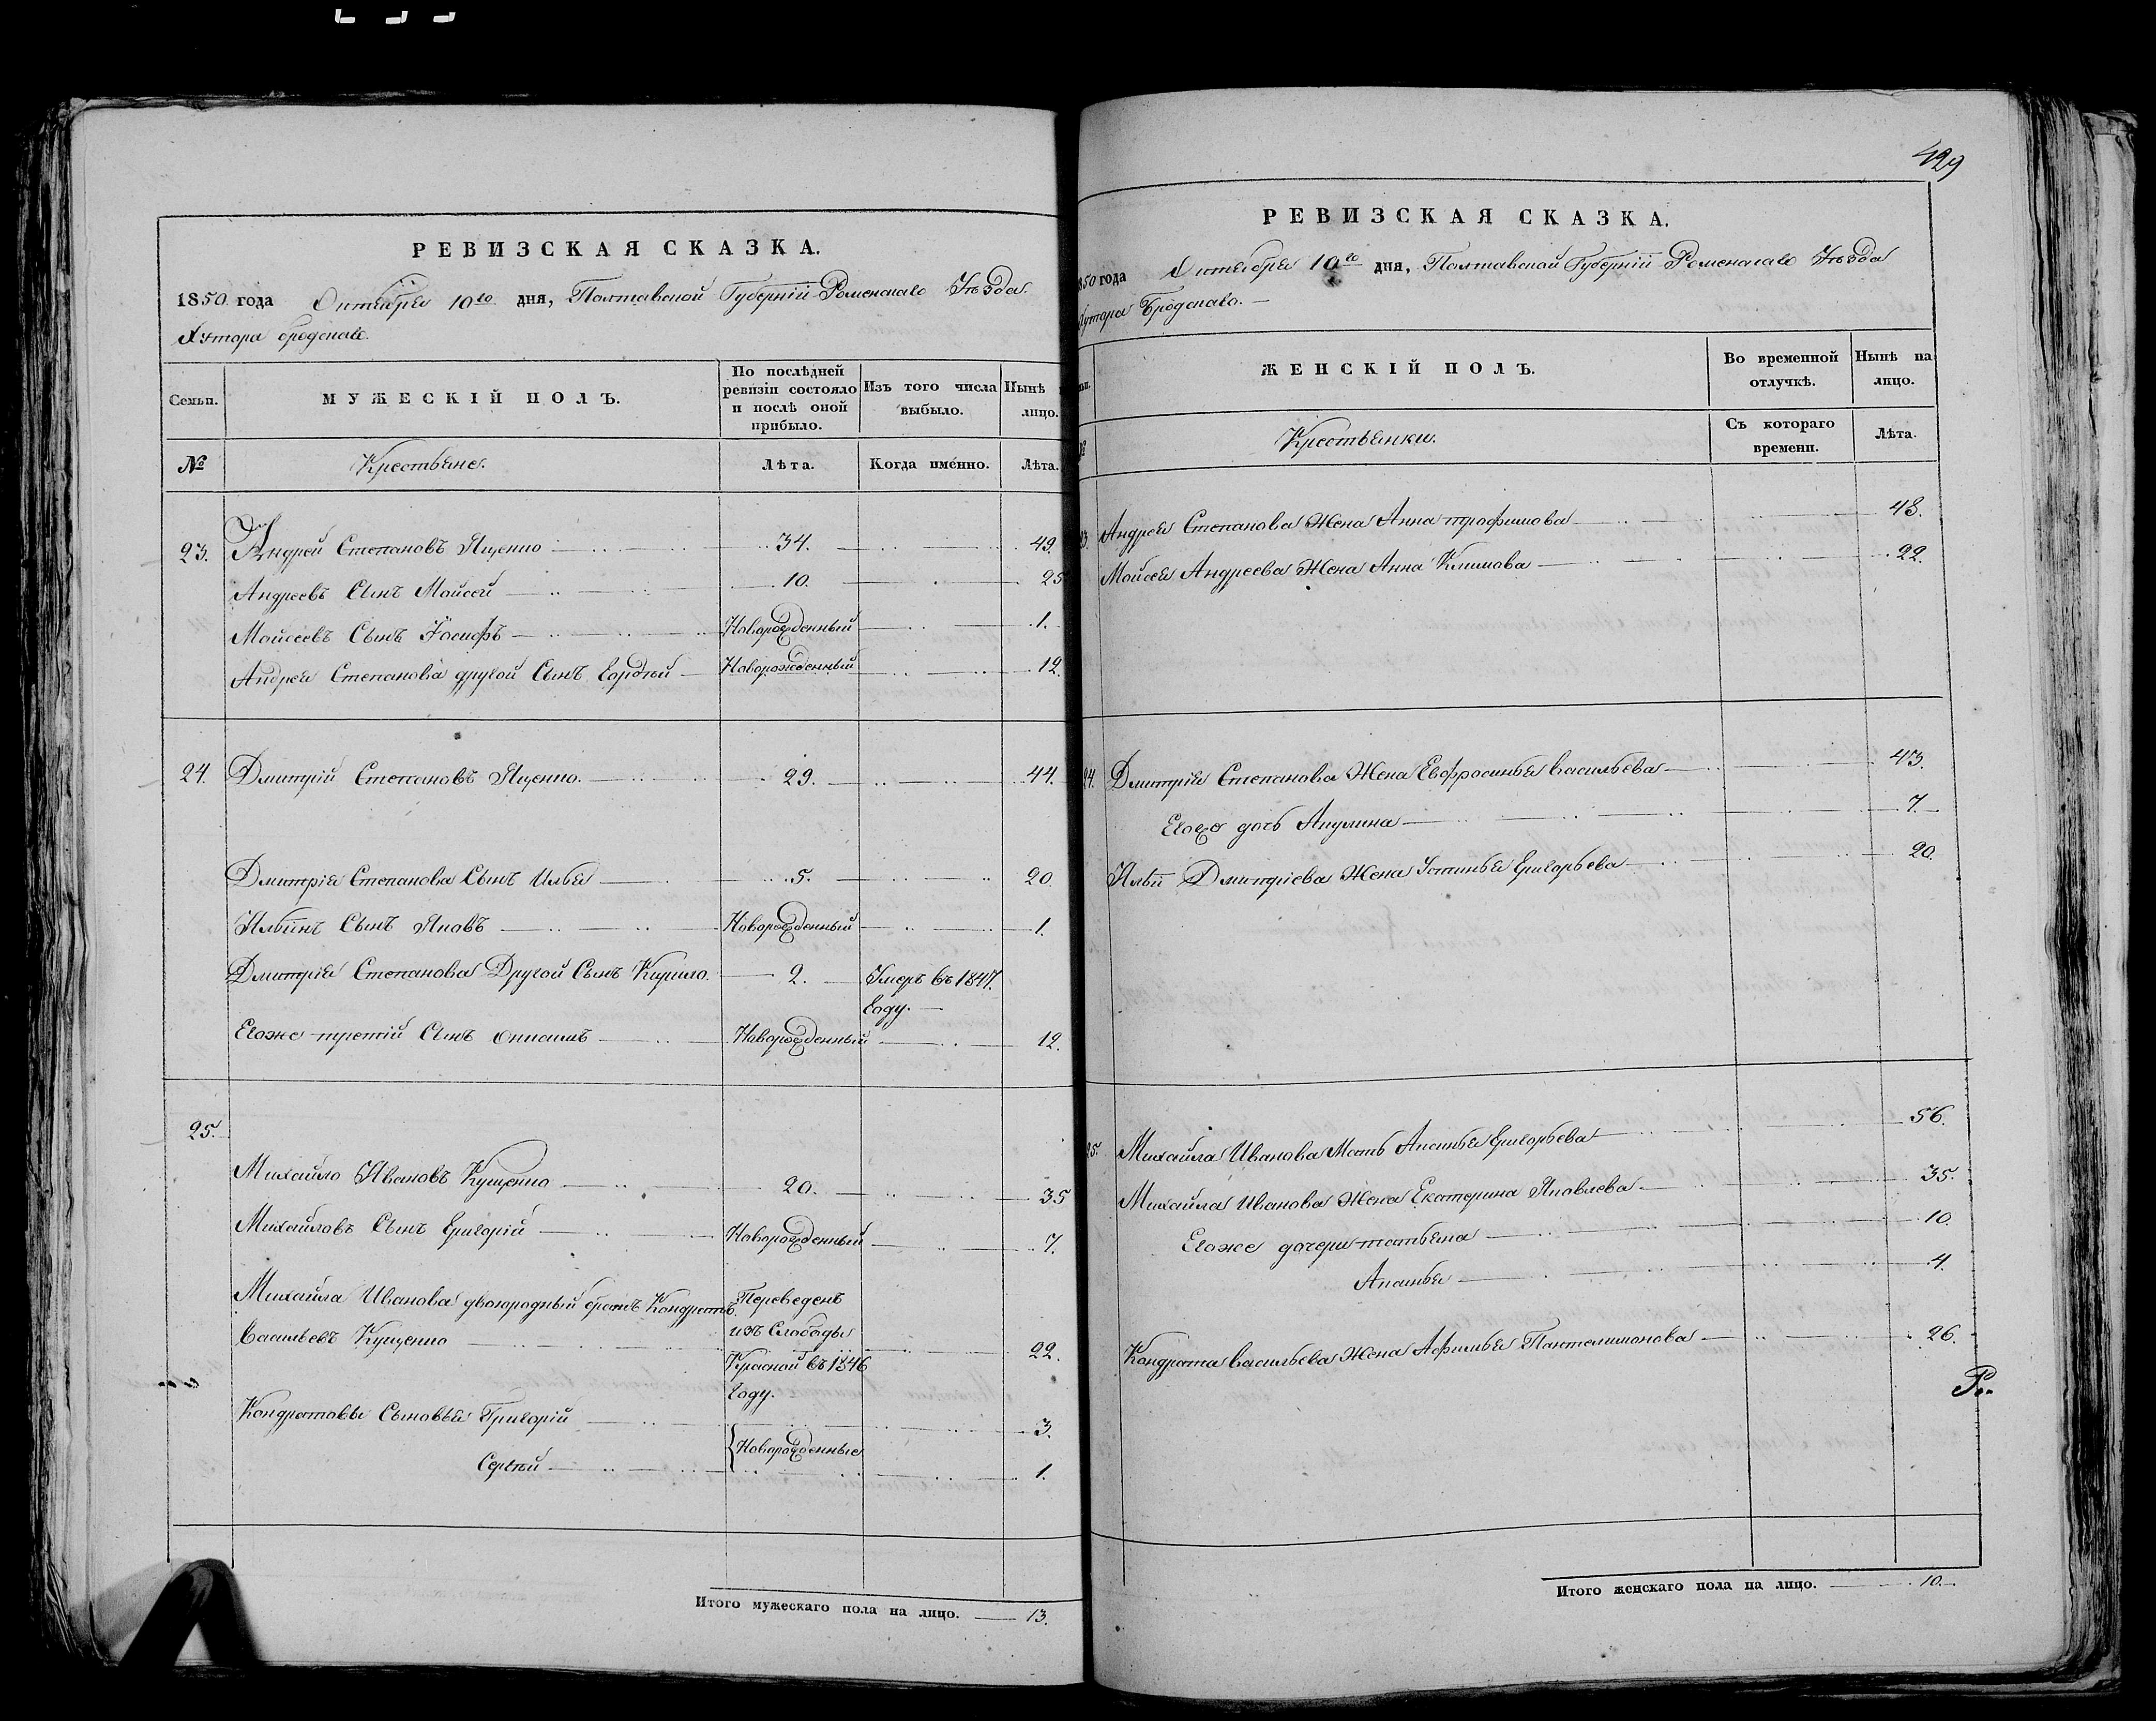 РЕВИЗСКАЯ СКАЗКА.
1850 года Октября 10го дня, Полтавской Губерніи Роменскаго Уѣзда
Хутора бродскаго.
Семьи.
МУЖЕСКІЙ ПОЛЪ.
По послѣдней ревизіи состояло и послѣ оной прибыло.
Изъ того числа выбыло.
Нынѣ
лицо.
№
Крестьяне.
Лѣта.
Когда именно.
Лѣта.
23. Андрей Степановъ Яценко 34. 49.
Андреевъ Сынъ Мойсей 10. 25
Мойсеевъ Сынъ Іосифъ Новорожденный 1.
Андрея Степанова другой Сынъ Гордѣй Новорожденный 12.
24. Дмитрій Степановъ Яценко. 29. 44.
Дмитрія Степанова Сынъ Илья 5. 20.
Ильинъ Сынъ Яковъ Новорожденный 1.
Дмитрія Степанова Другой Сынъ Кирило. 2. Умеръ въ 1847.
Году.
Егоже третій Сынъ Онисимъ Новорожденный 12.
25.
Михайло Ивановъ Куценко 20. 35
Михайловъ Сынъ Григорій Новорожденный 7.
Михайла Иванова двоюродный братъ Кондратъ Переведенъ
Васильевъ Куценко изъ Слободы 22.
Красной въ 1846
Году.
Кондратовы Сыновья Григорій 3.
Новорожденные
Сергѣй 1.
Итого мужескаго пола на лицо. 13.
429
РЕВИЗСКАЯ СКАЗКА.
850 года Октября 10го дня, Полтавской Губерніи Роменскаго Уѣзда
Хутора Бродскаго.
ЖЕНСКІЙ ПОЛЪ.
Во временной отлучкѣ.
Нынѣ на лицо.
Крестьянки.
Съ котораго времени.
Лѣта.
23. Андрея Степанова Жена Анна трофимова 48.
Мойсея Андреева Жена Анна Климова 22.
24. Дмитрія Степанова Жена Евфросинья Васильева 43.
Егожъ дочь Акулина 7.
Ильи Дмитріева Жена Устинья Григорьева 20.
25. Михайла Иванова Мать Анна Григорьева 56.
Михайла Иванова Жена Екатерина Яковлева 35.
Егоже дочери татьяна 10.
Аксинья 4.
Кондрата Васильева Жена Афимья Пантелимонова 26.
Итого женскаго пола на лицо. 10.